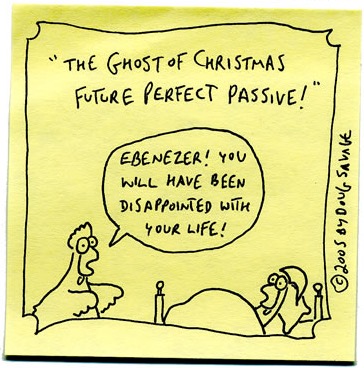 "THE GHOST OF CHRISTMAS
FUTURE PERFECT PASSIVE!"
EBENEZER! YOU
WILL HAVE BEEN
DISAPPOINTED WITH
YOUR LIFE!
©2005 BY DOUG SAVAGE